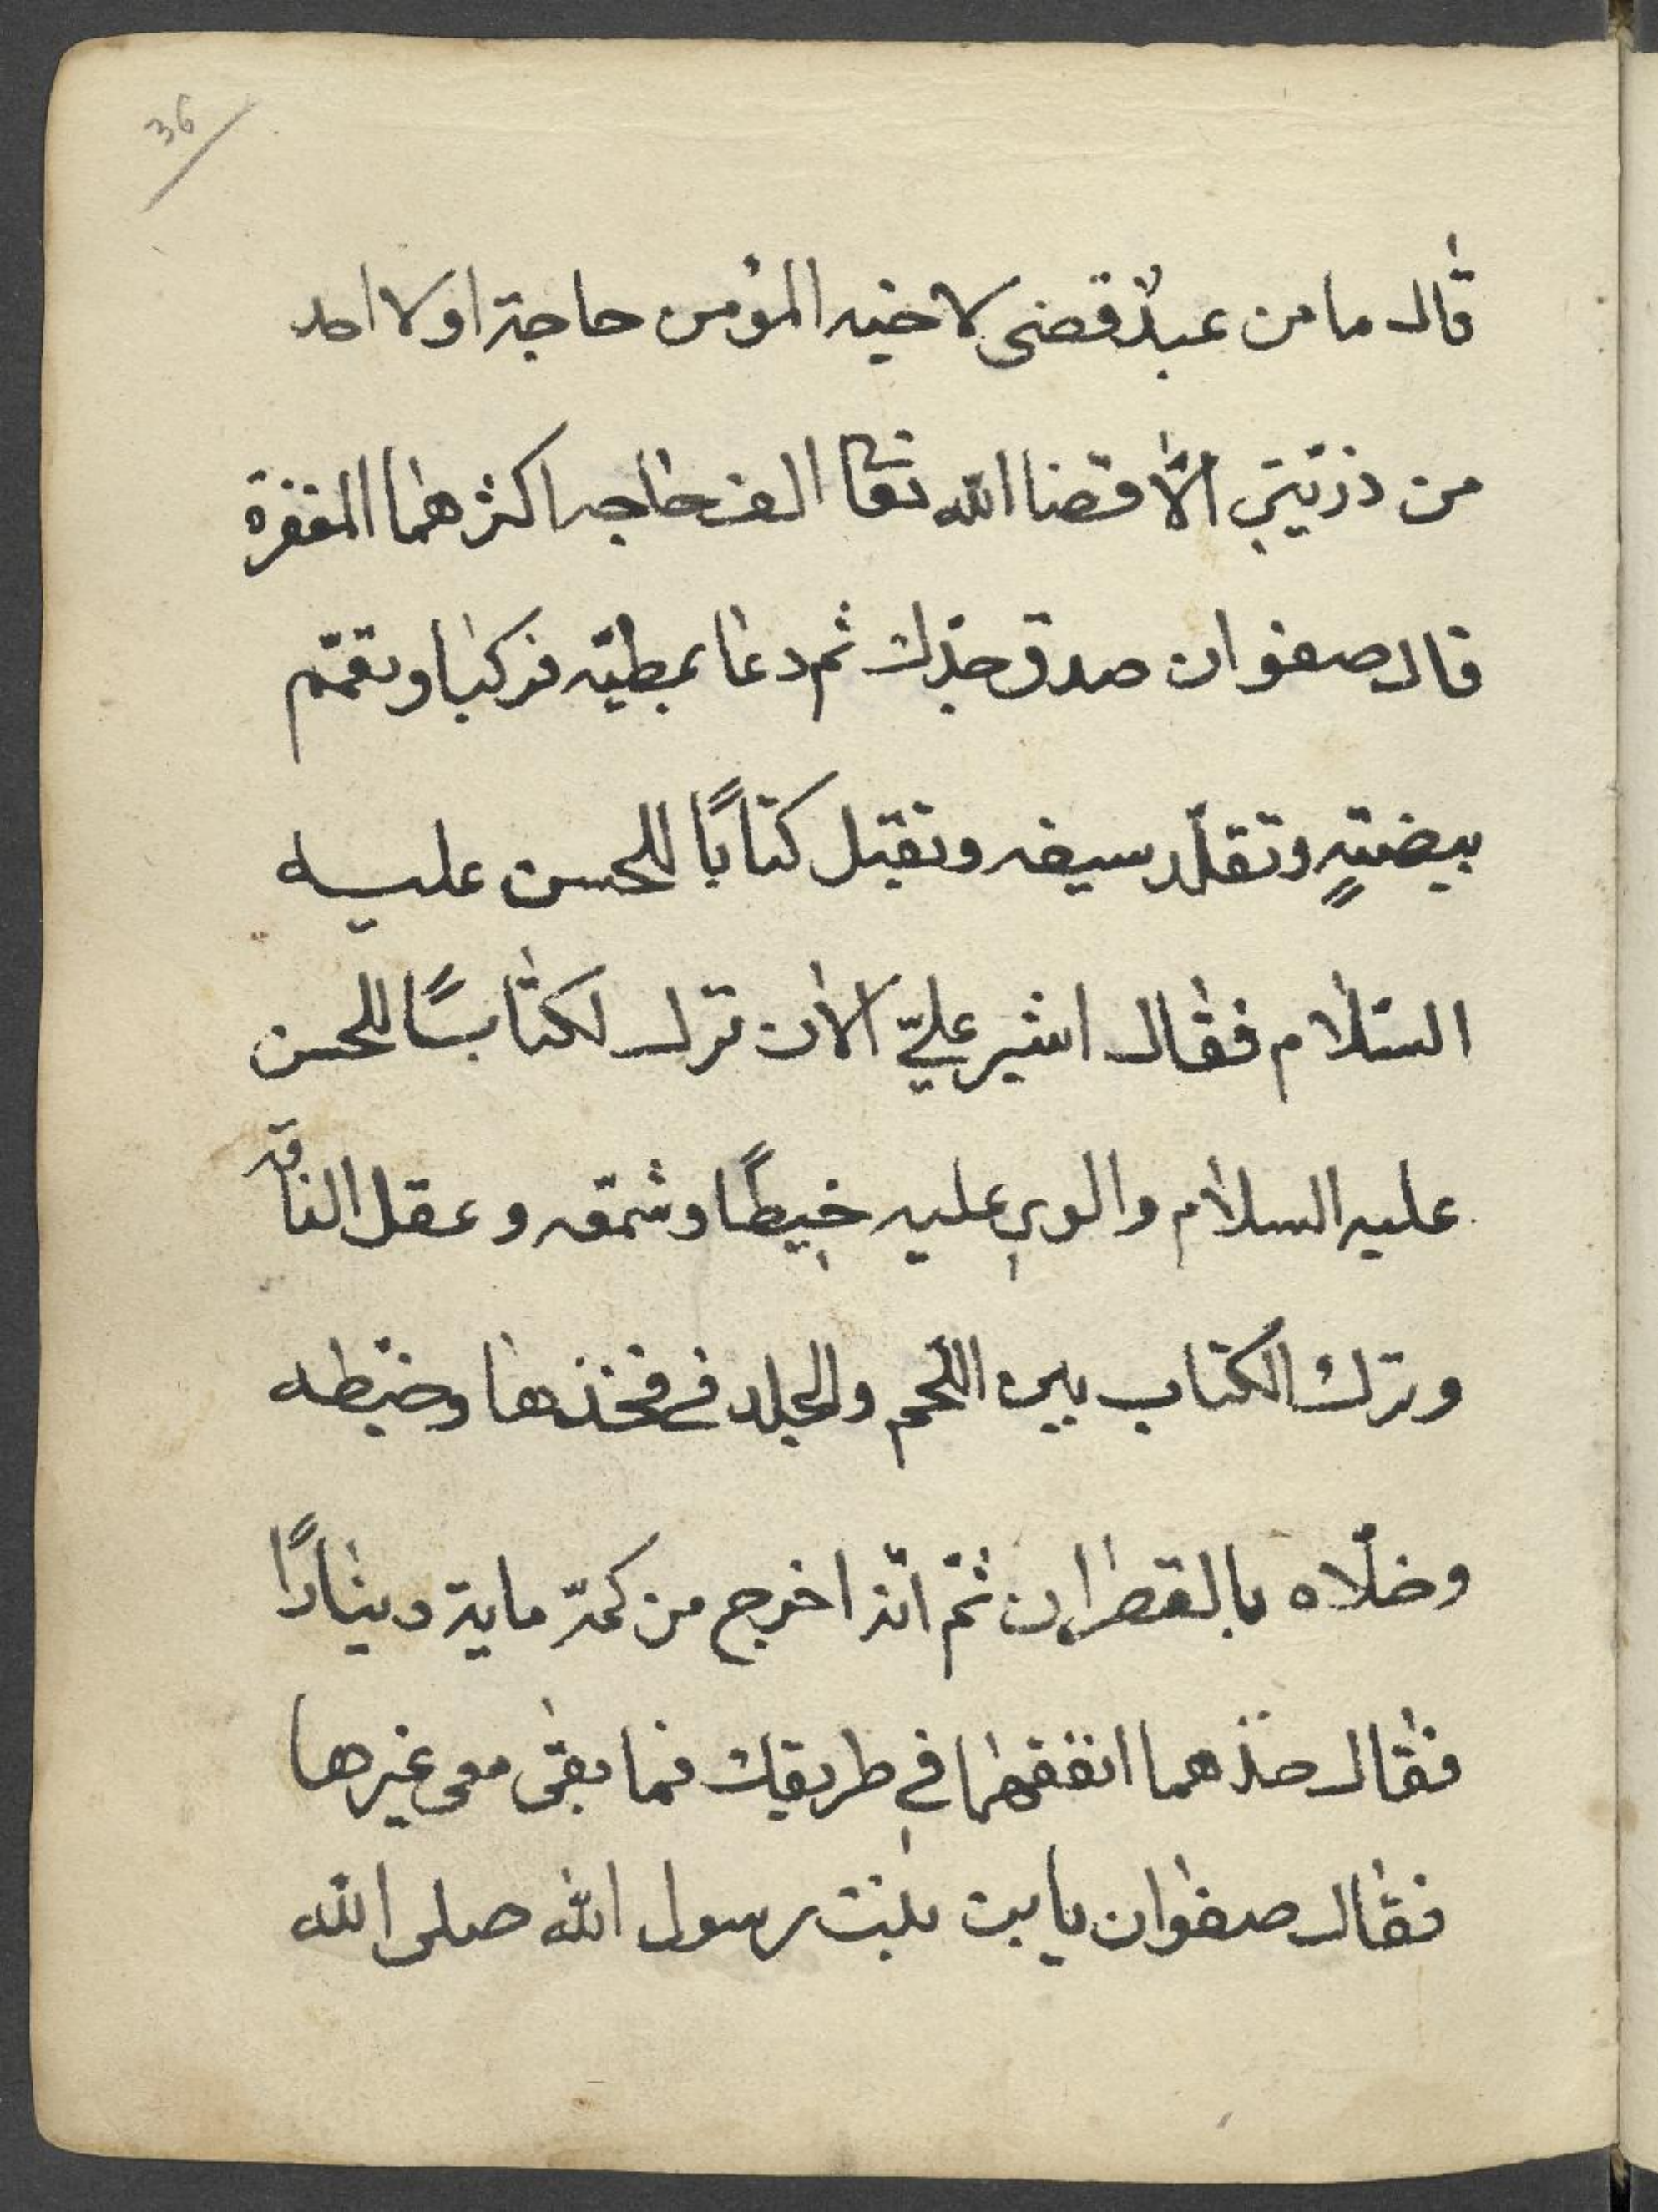 36
قال ما من عبدٌ قضى لاخيه المؤمن حاجة او لاحد
من ذرّيتي الّا قضا الله تعا الف حاجه اكثرهما المغفرة
قال صفوان صدق جدّك ثم دعا بمطيّه فركبا وتعمّم
ببيضتهٍ وتقلّد سيفه وتقبل كتابًا للحسن عليه
السّلام فقال اشير عليّ الان ترك لكتابسًا للحسن
عليه السلام والوى عليه خيطًا وشمقه وعقل الناقه
وترك الكتاب بين اللّحم والجلد في فخذها وخيّطه
وخلّاه بالقطران ثمّ انّه اخرج من كمّه ماية دينارًا
فقال خذهما انفقهما في طريقك فما بقى معى غيرها
فقال صفوان يابت بلبنت رسول الله صلى الله